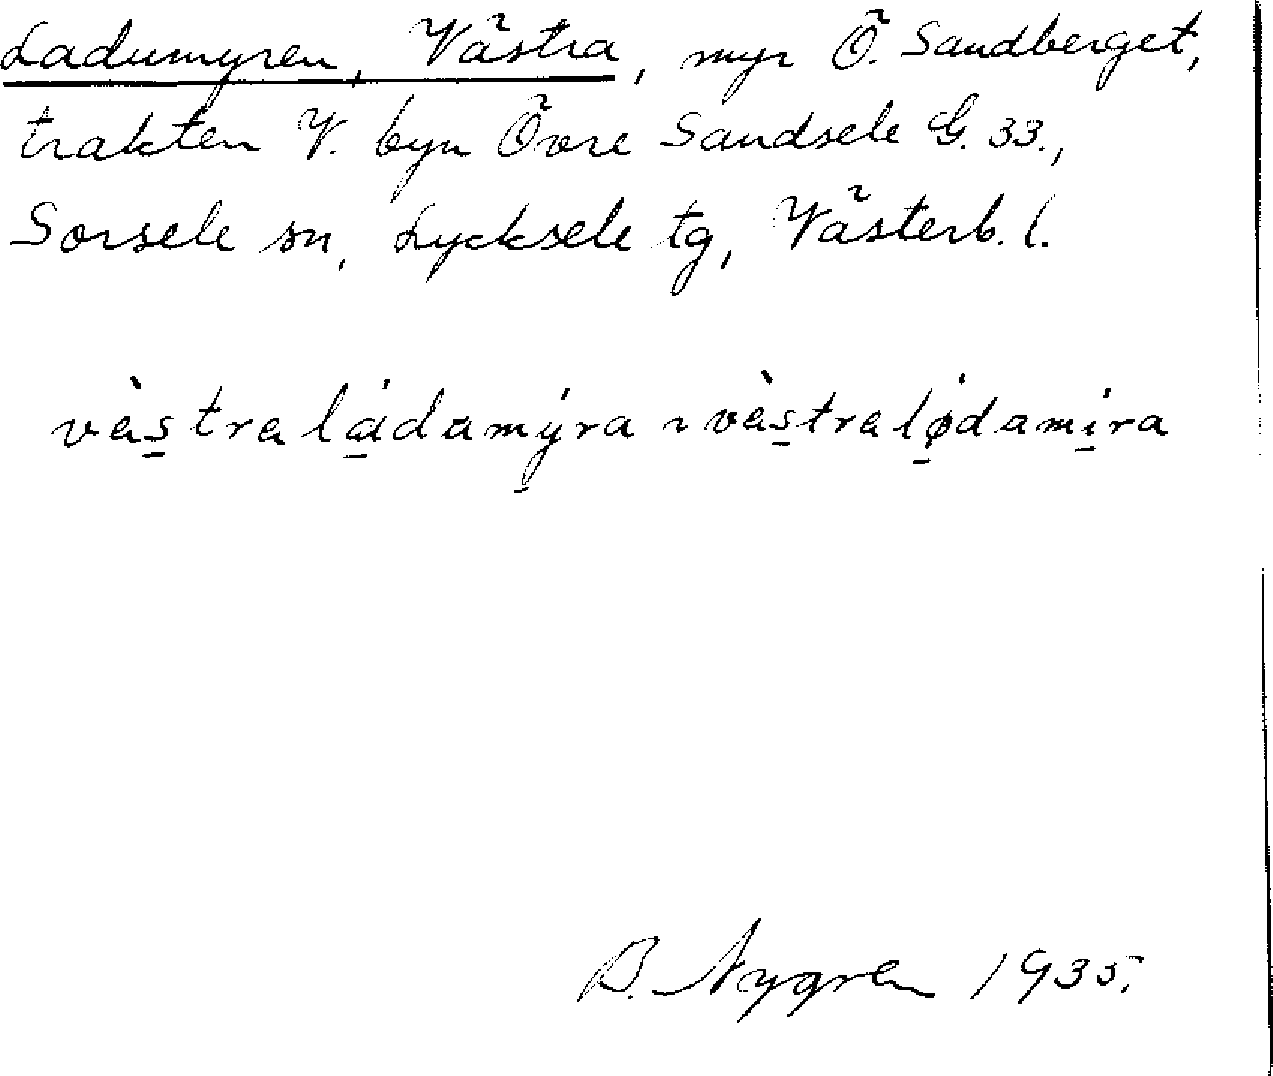 Ladumyren, Västra, myr Ö. Sandberget,
trakten V. byn Övre Sandsele G. 33.,
Sorsele sn, Lycksele tg, Västerb. l.
vàs̲tralá̲damý̲ra ~ vàs̲tralǿ̲damí̲ra
B. Nygren 1935.